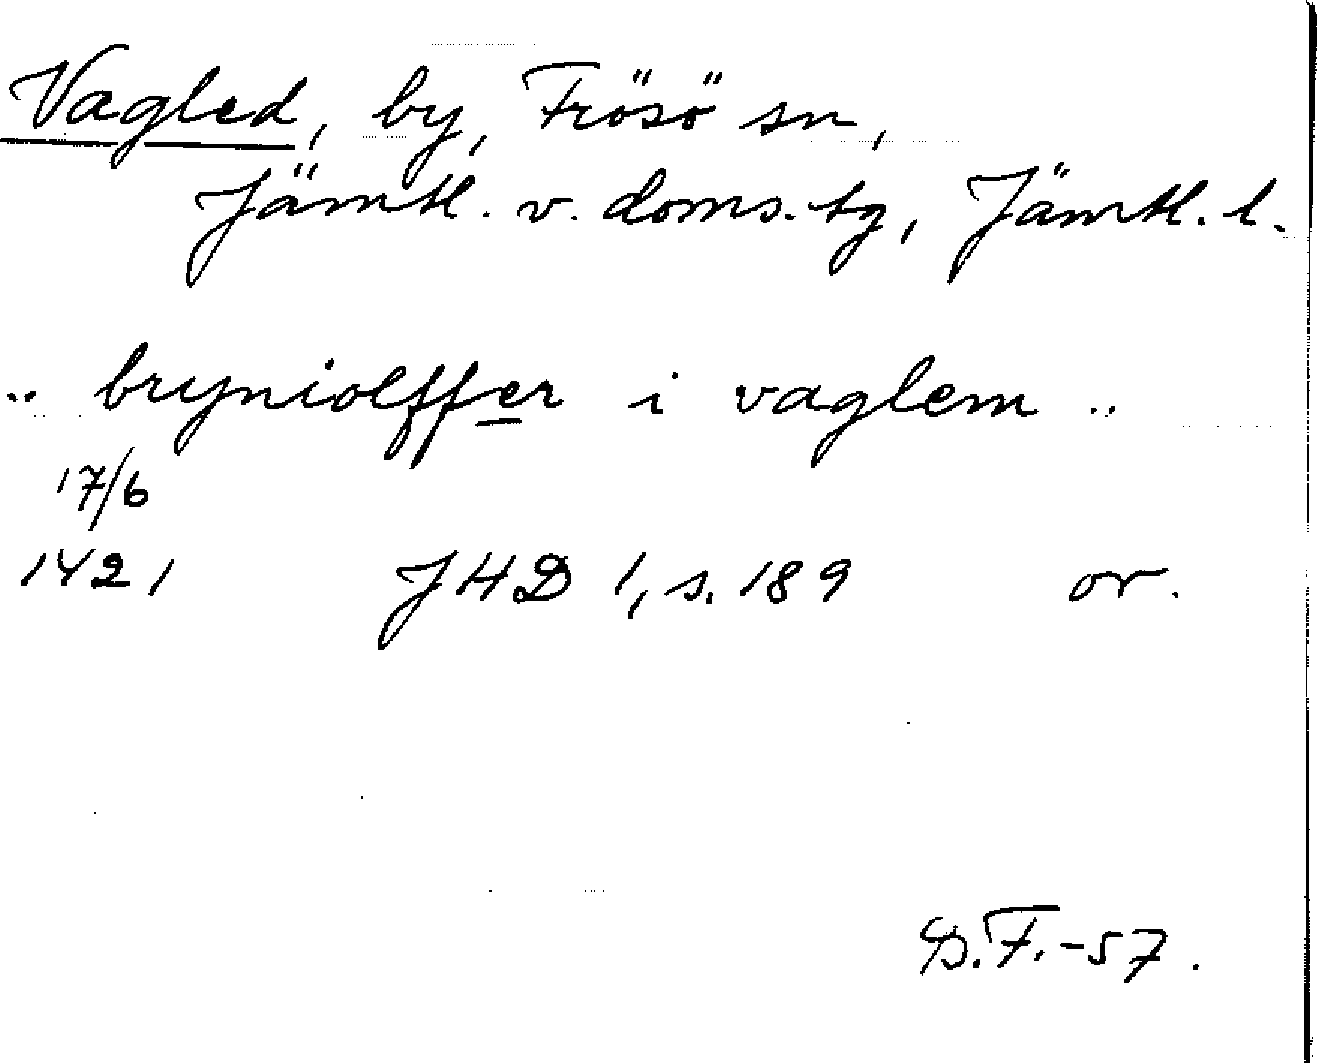 Vagled, by, Frösö sn,
Jämtl. v. doms.tg, Jämtl. l.
.. bryniolffer i vaglem ..
17/6
1421 JHD 1, s. 189 or.
D.F.-57.